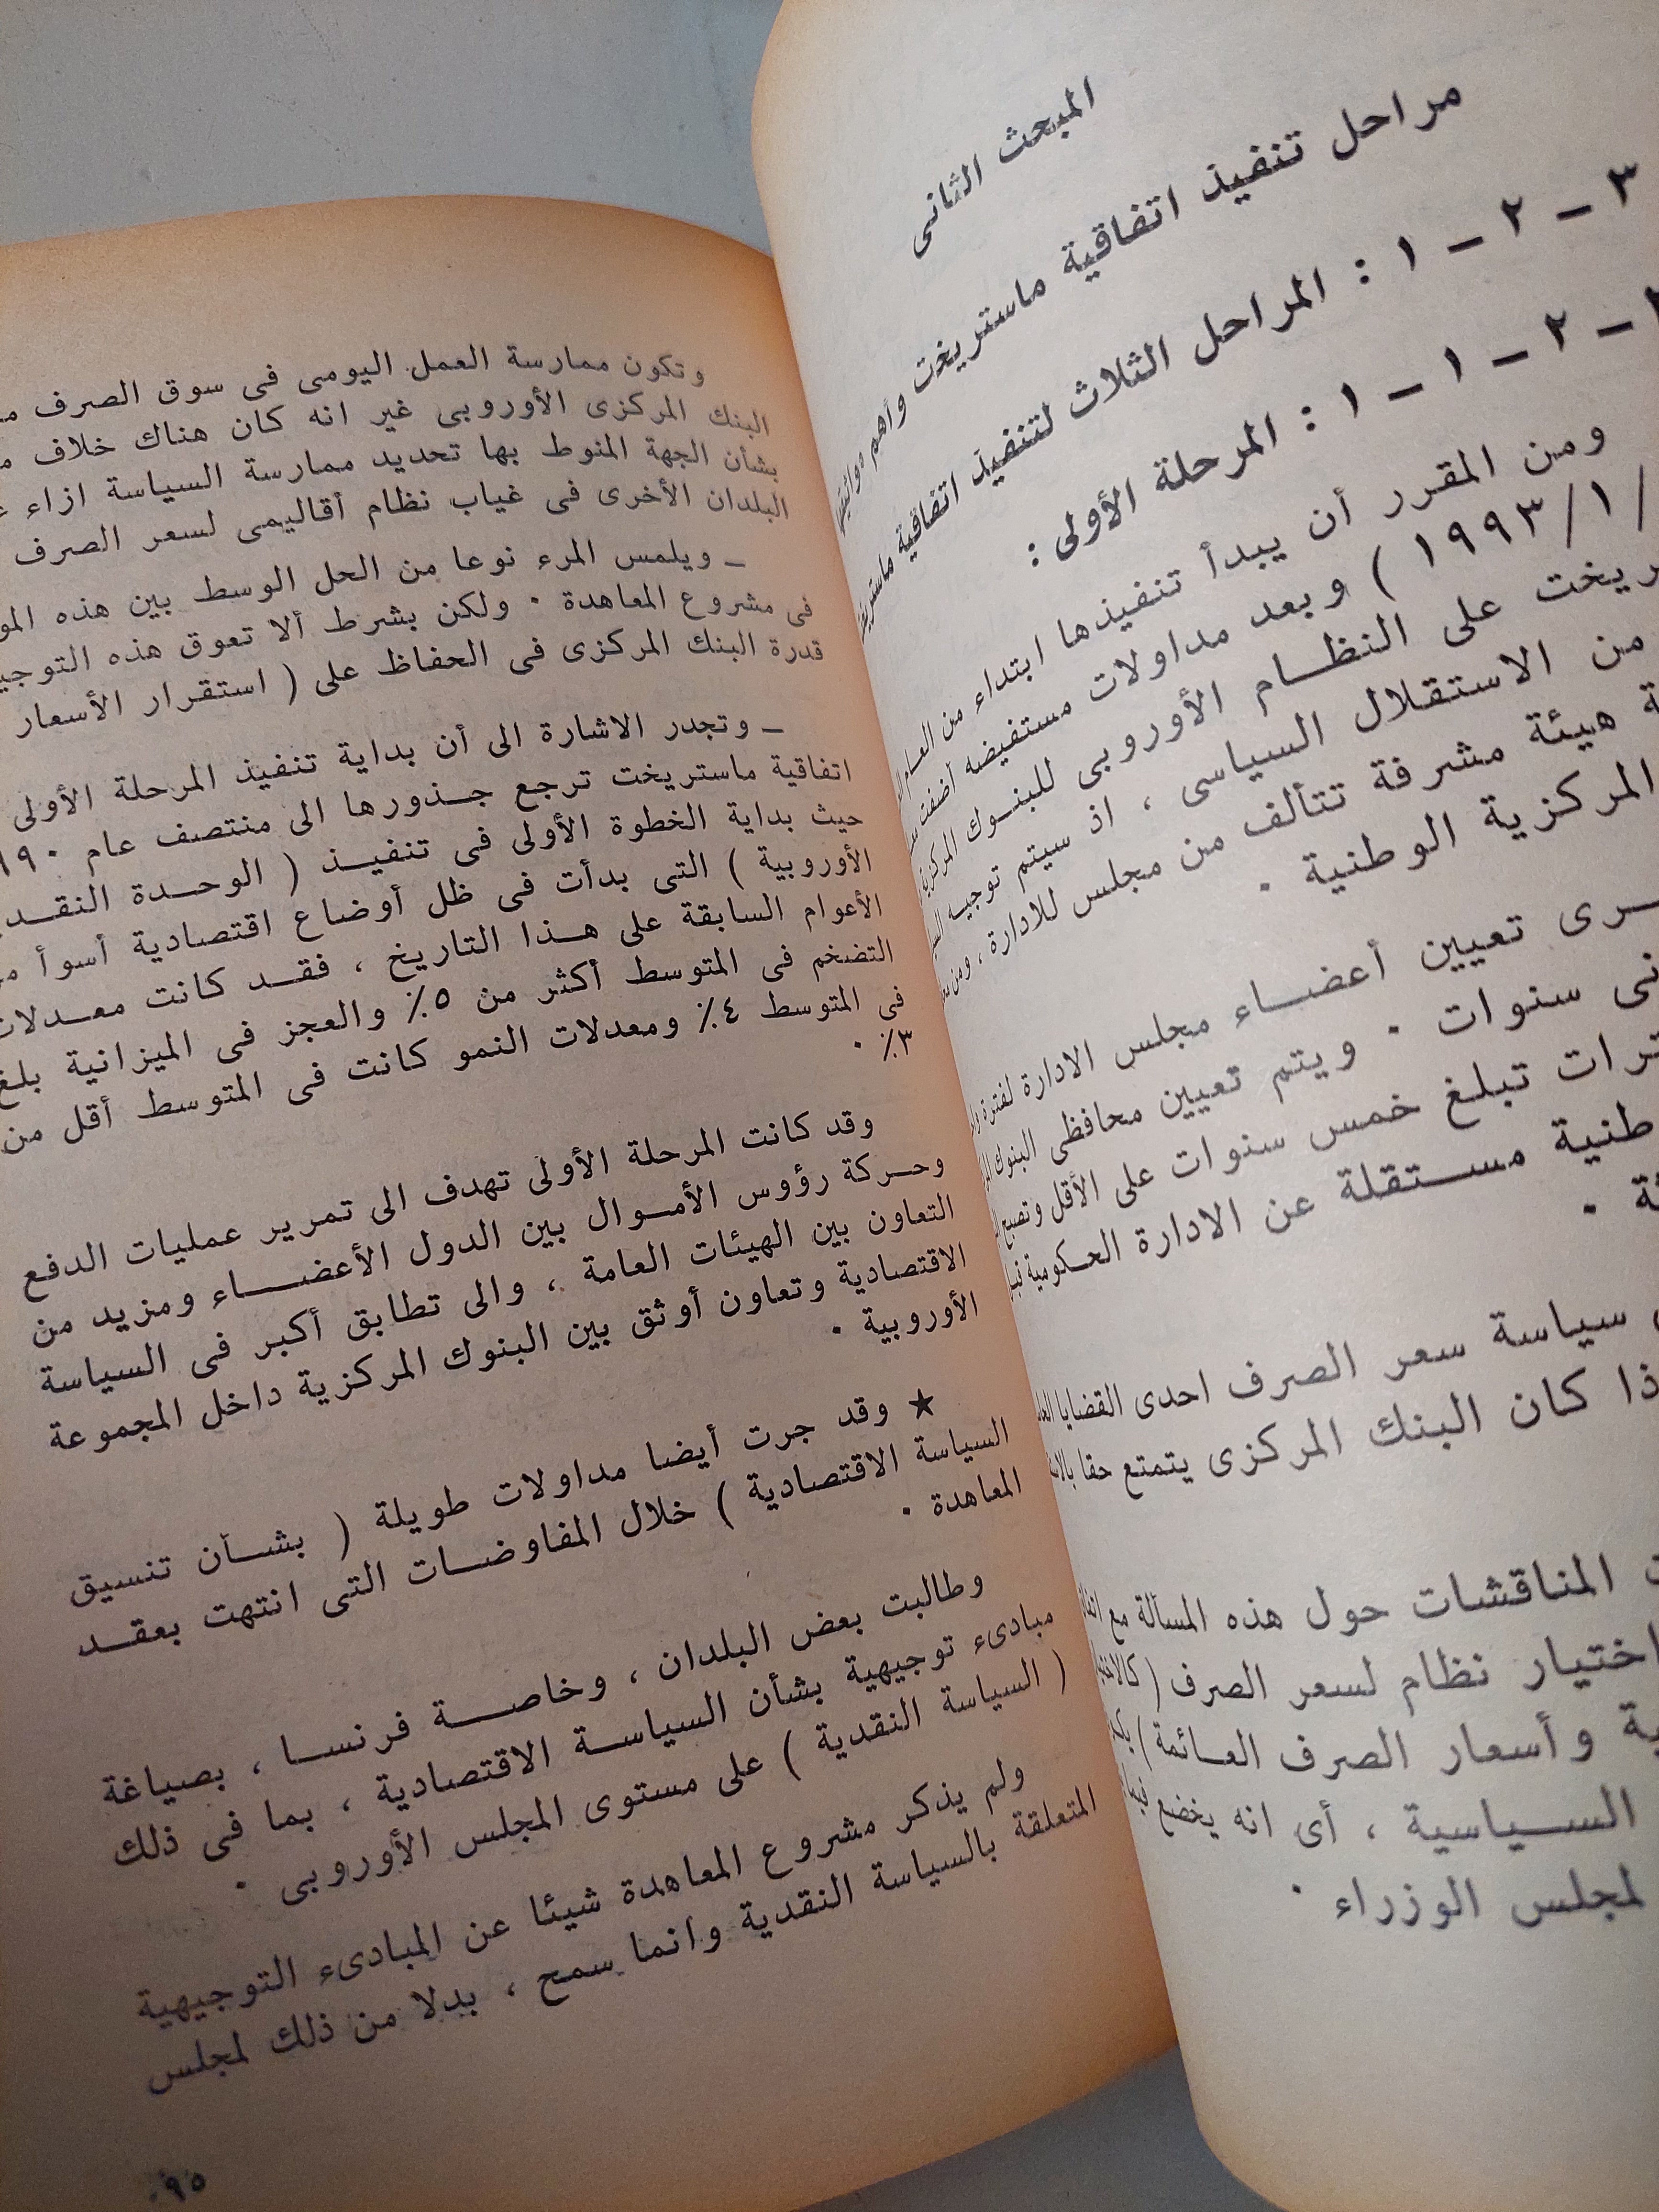 المبحث الثانى
مراحل تنفيذ اتفاقية ماستريخت وأهم
٣ – ٢ – ١ : المراحل الثلاث لتنفيذ اتفاقية
– ٢ – ١ – ١ : المرحلة الأولى :
ومن المقرر أن يبدأ تنفيذها ابتداء من العام
/١/١٩٩٣ ) وبعد مداولات مستفيضه أضفت
على النظام الأوروبى للبنوك المركزية
من الاستقلال السياسى ، اذ سيتم توجيه
هيئة مشرفة تتألف من مجلس للادارة ، ومن
المركزية الوطنية ٠
تعيين أعضاء مجلس الادارة لفترة
سنوات ٠ ويتم تعيين محافظى البنوك
تبلغ خمس سنوات على الأقل وتصبح
مستقلة عن الادارة الحكومية
سياسة سعر الصرف احدى القضايا
كان البنك المركزى يتمتع حقا
المناقشات حول هذه المسألة مع
اختيار نظام لسعر الصرف
وأسعار الصرف العائمة )
السياسية ، أى انه يخضع
لمجلس الوزراء ٠
وتكون ممارسة العمل اليومى فى سوق الصرف
البنك المركزى الأوروبى غير انه كان هناك خلاف
بشأن الجهة المنوط بها تحديد ممارسة السياسة ازاء
البلدان الأخرى فى غياب نظام أقاليمى لسعر الصرف
– ويلمس المرء نوعا من الحل الوسط بين هذه
فى مشروع المعاهدة ٠ ولكن بشرط ألا تعوق هذه
قدرة البنك المركزى فى الحفاظ على ( استقرار الأسعار
– وتجدر الاشارة الى أن بداية تنفيذ المرحلة الأولى
اتفاقية ماستريخت ترجع جذورها الى منتصف عام
حيث بداية الخطوة الأولى فى تنفيذ ( الوحدة
الأوروبية ) التى بدأت فى ظل أوضاع اقتصادية أسوأ
الأعوام السابقة على هذا التاريخ ، فقد كانت معدلات
التضخم فى المتوسط أكثر من ٥٪ والعجز فى الميزانية بلغ
فى المتوسط ٤٪ ومعدلات النمو كانت فى المتوسط أقل من
٣٪ ٠
وقد كانت المرحلة الأولى تهدف الى تمرير عمليات الدفع
وحركة رؤوس الأموال بين الدول الأعضاء ومزيد من
التعاون بين الهيئات العامة ، والى تطابق أكبر فى السياسة
الاقتصادية وتعاون أوثق بين البنوك المركزية داخل المجموعة
الأوروبية ٠
★ وقد جرت أيضا مداولات طويلة ( بشأن تنسيق
السياسة الاقتصادية ) خلال المفاوضات التى انتهت بعقد
المعاهدة ٠
وطالبت بعض البلدان ، وخاصة فرنسا ، بصياغة
مبادىء توجيهية بشأن السياسة الاقتصادية ، بما فى ذلك
( السياسة النقدية ) على مستوى المجلس الأوروبى ٠
ولم يذكر مشروع المعاهدة شيئا عن المبادىء التوجيهية
المتعلقة بالسياسة النقدية وانما سمح ، بدلا من ذلك لمجلس
٩٥